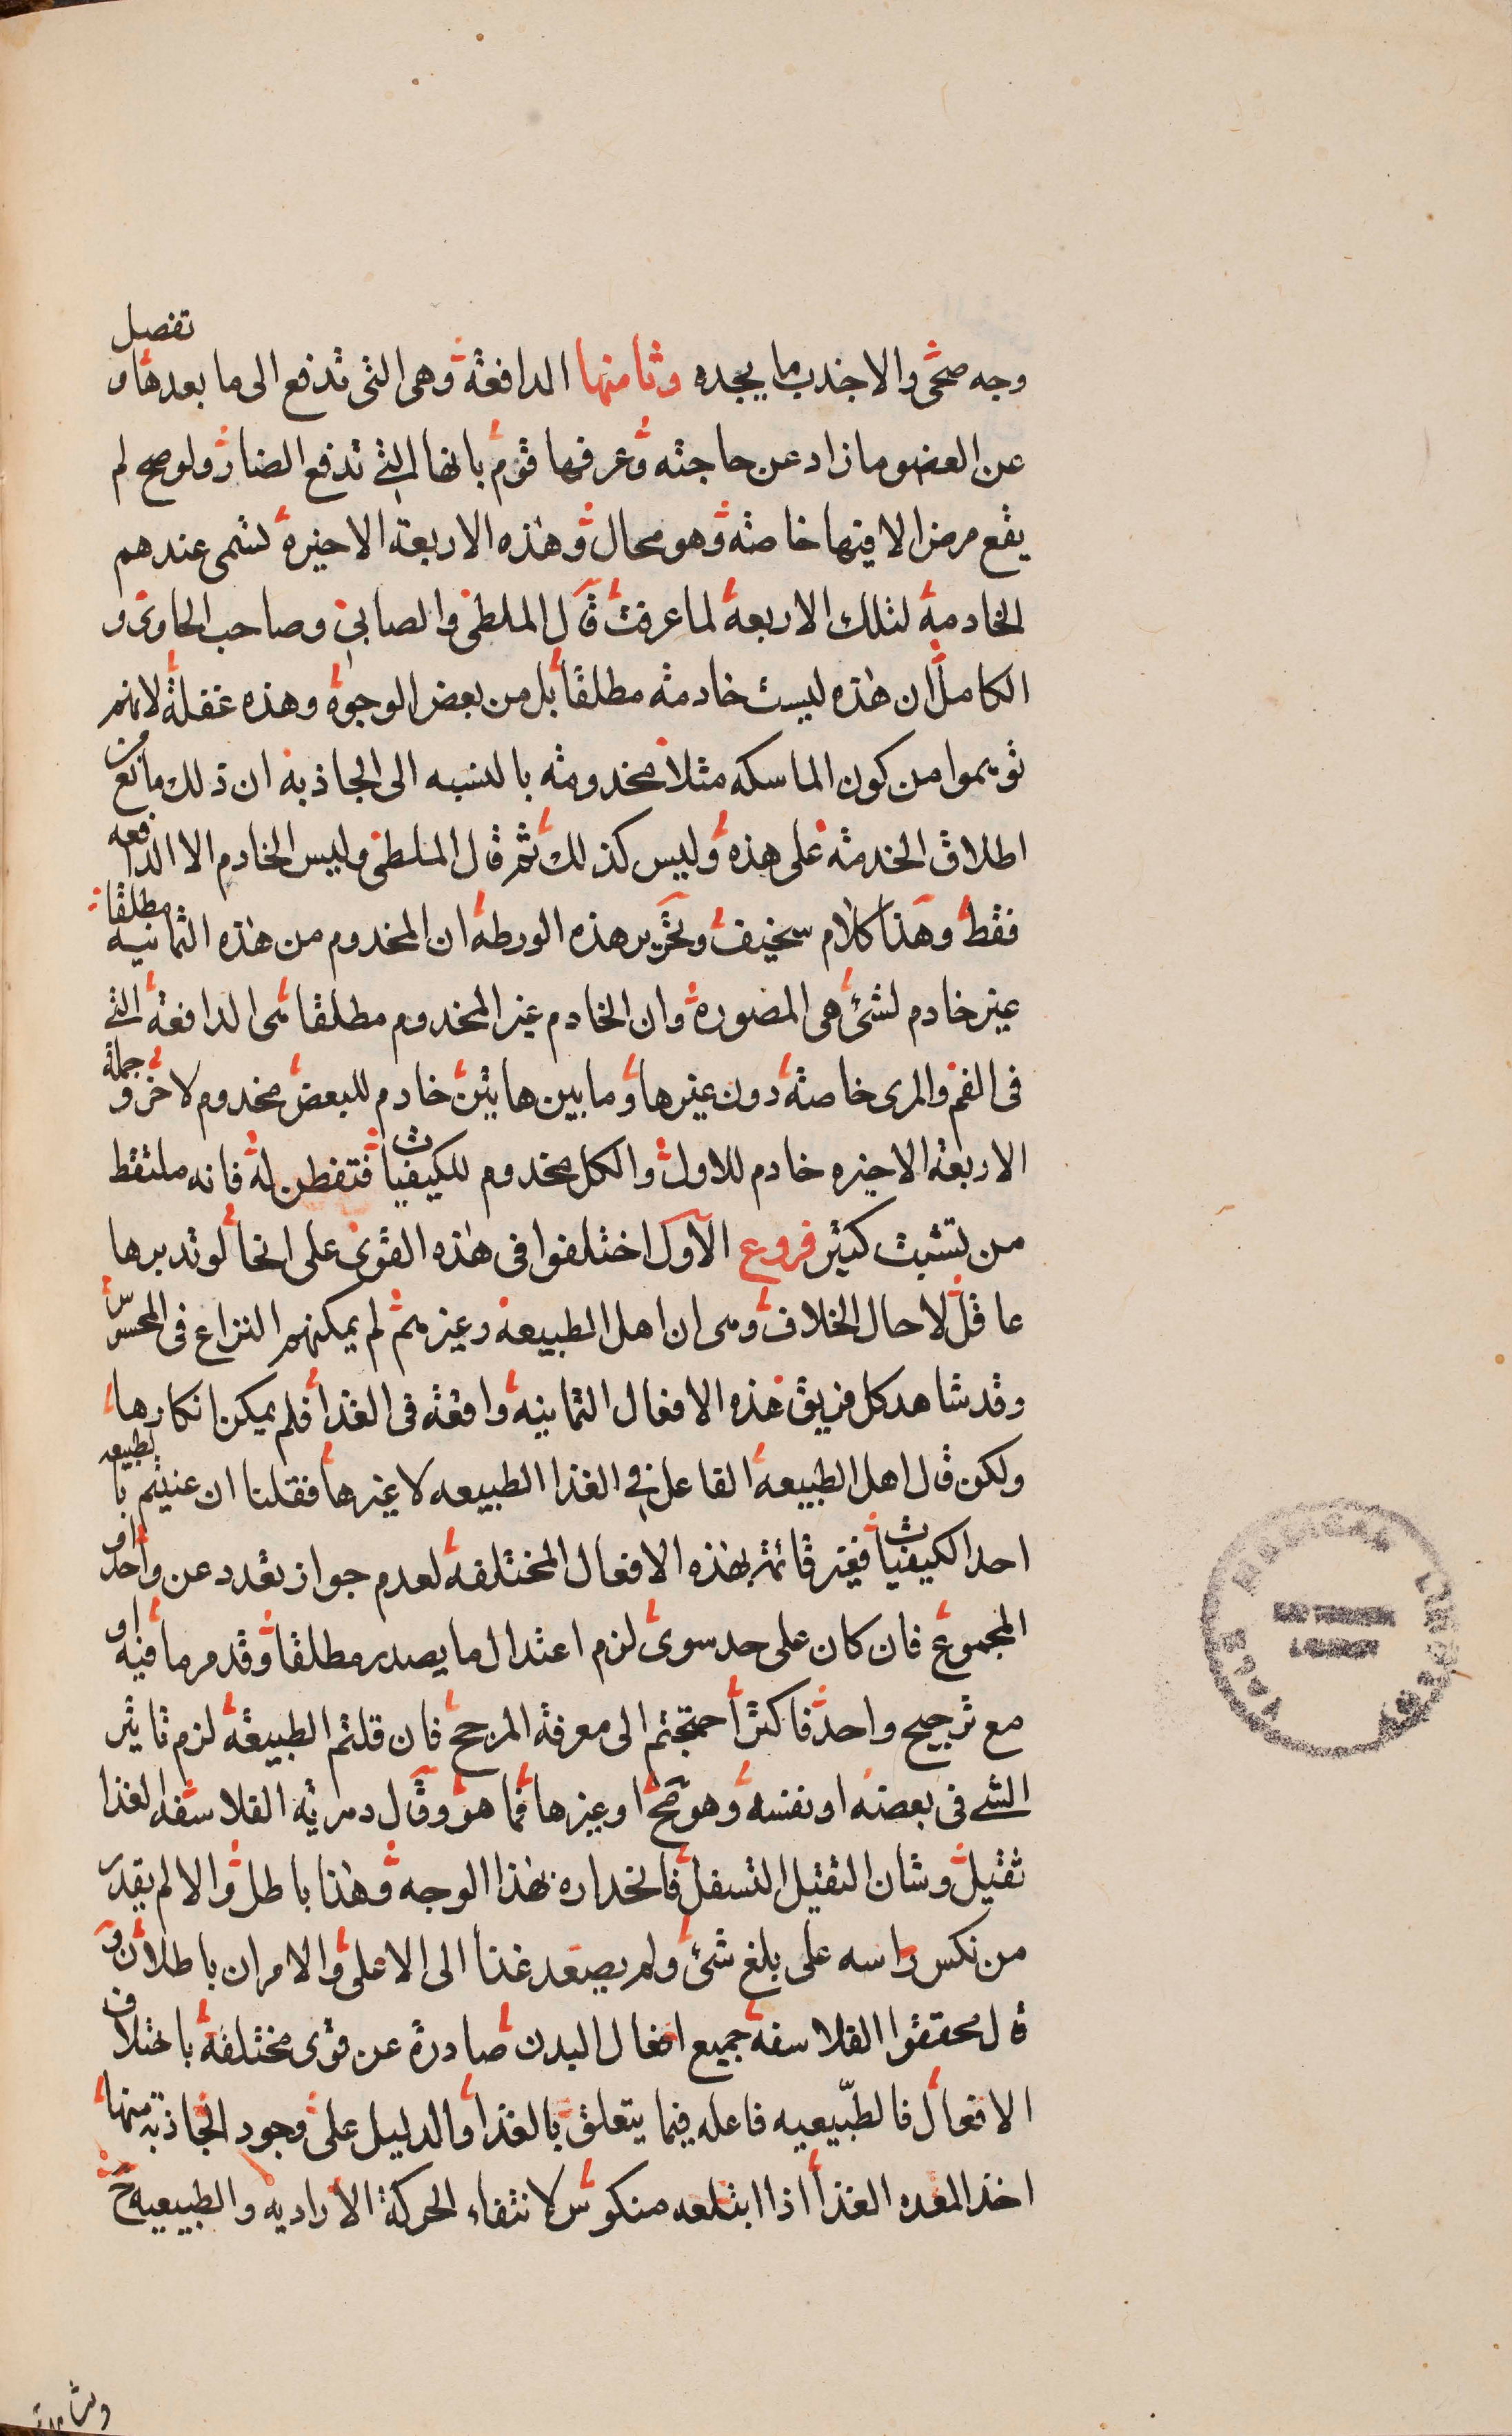 وجه صحى والا جذب ما يجده وثامنها الدافعة وهى التى تدفع الى ما بعدها و تفصل
عن العضو ما زاد عن حاجته وعرفها قوم بانها التى تدفع الضار ولو صح لم
يقع مرض الا فيها خاصة وهو محال وهذه الاربعة الاخيرة تسمى عندهم
الخادمة لتلك الاربعة لما عرفت قال الملطى والصابى وصاحب الحاوى و
الكامل ان هذه ليست خادمة مطلقا بل من بعض الوجوه وهذه غفلة لانهم
توهموا من كون الماسكه مثلا مخدومة بالنسبه الى الجاذبه ان ذلك مانع من
اطلاق الخدمة على هذه وليس كذلك ثم قال الملطى وليس الخادم الا الدافعه
فقط وهذا كلام سخيف وتحرير هذه الورطة ان المخدوم من هذه الثمانيه مطلقا
غير خادم لشئ هى المصورة وان الخادم غير المخدوم مطلقا هى الدافعة التى
فى الفم والمرى خاصة دون غيرها وما بين هاتين خادم للبعض مخدوم لاخر و جملة
الاربعة الاخيره خادم للاول والكل مخدوم للكيفيات فتفطن له فانه ملتقط
من تشبث كثير فروع الاول اختلفوا فى هذه القوى على انحا لو تدبرها
عاقل لاحال الخلاف وهى ان اهل الطبيعة وغيرهم لم يمكنهم النزاع فى المحسوس
وقد شاهد كل فريق هذه الافعال الثمانية واقعة فى الغذا فلم يمكن انكارها
ولكن قال اهل الطبيعة الفاعل فى الغذا الطبيعه لا غيرها فقلنا ان عنيتم بالطبيعه
احد الكيفيات فغير قائمة بهذه الافعال المختلفة لعدم جواز تعدد عن واحد او
المجموع فان كان على حد سوى لزم اعتدال ما يصدر مطلقا وقد مر ما فيه او
مع ترجيح واحد فاكثر احتجتم الى معرفة المرجح فان قلتم الطبيعة لزم تاثير
الشى فى بعضه او نفسه وهو مح او غيرها فما هو وقال دهرية الفلاسفه الغذا
ثقيل وشان الثقيل التسفل فانحداره بهذا الوجه وهذا باطل والا لم يقدر
من نكس راسه على بلغ شئ ولم يصعد غذا الى الاعلى والامران باطلان و
قال محققوا الفلاسفة جميع افعال البدن صادرة عن قوى مختلفة باختلاف
الافعال فالطبيعيه فاعله فيما يتعلق بالغذا والدليل على وجود الجاذبة منها
اخذ المعده الغذا اذا ابتلعه منكوس لانتفاء الحركة الاراديه والطبيعيه ح
YALE MEDICAL LIBRARY